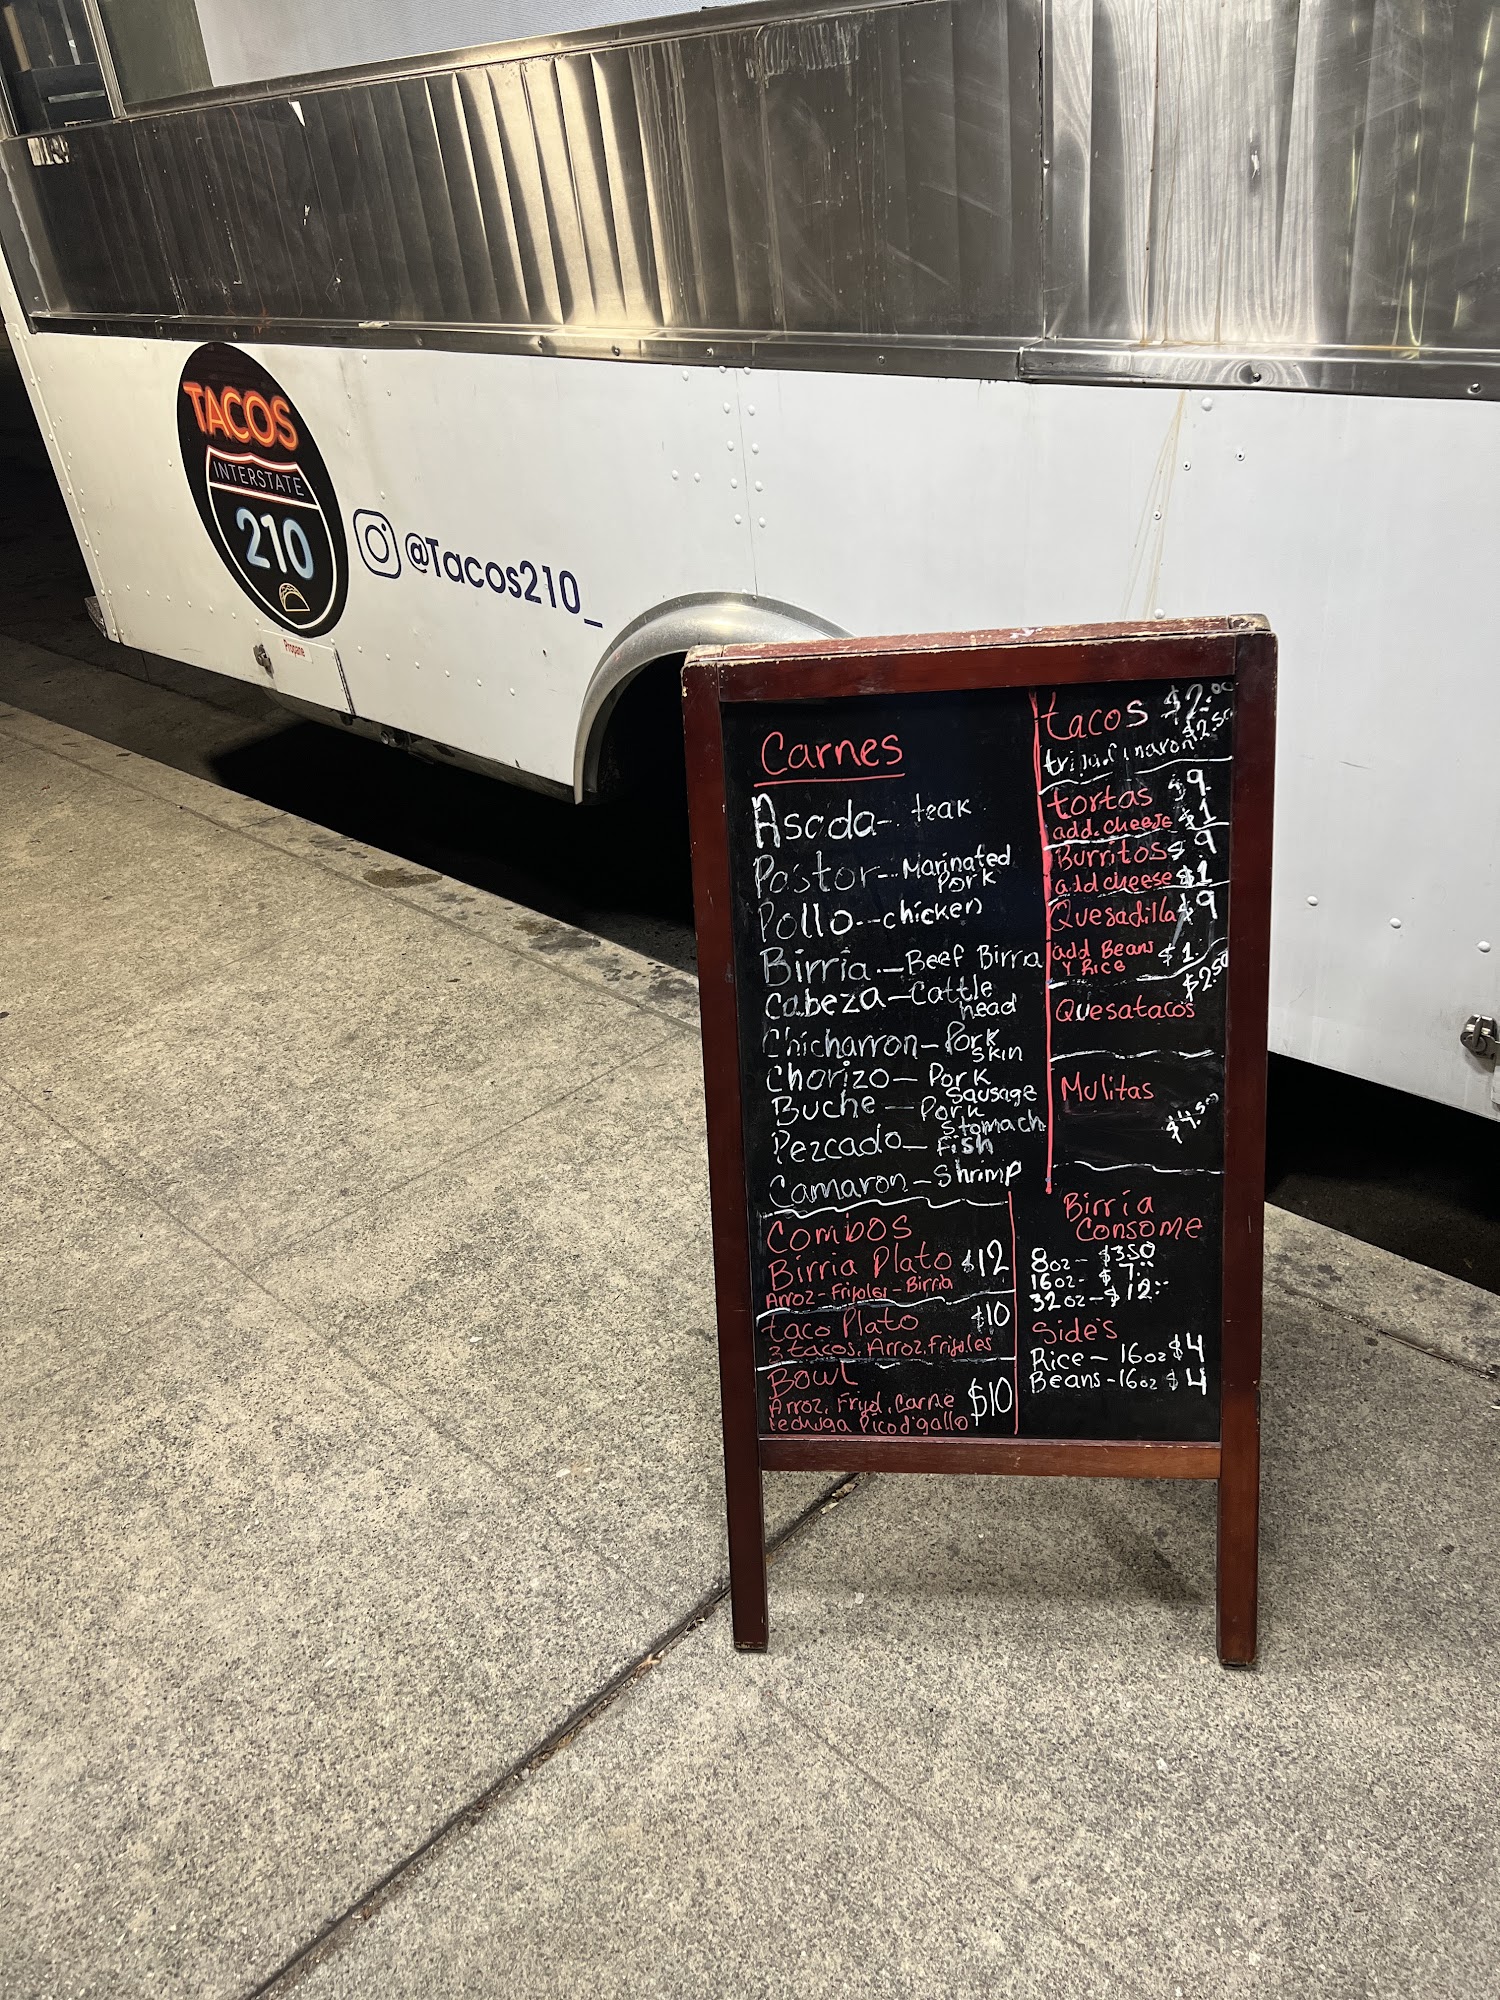 TACOS
INTERSTATE
210
@Tacos210_
Propane
Carnes
Asada-- teak
Pastor--- Marinated
Pork
Pollo--- chicken
Birria -- Beef Birria
Cabeza - Cattle
head
Chicharron - Pork
Skin
Chorizo - Pork
Sausage
Buche - Pork
Stomach
Pezcado - Fish
Camaron - Shrimp
Combos
Birria Plato $12
Arroz - Frijoles - Birria
taco Plato $10
3 tacos. Arroz. Frijoles
Bowl
Arroz. Carne $10
lechuga Pico d'gallo
tacos $2.00
$2.50
tortas $9.
add. cheese $1
Burritos $9
add cheese $1
Quesadilla $9
add Beans
Y Rice $1.
$2.50
Quesatacos
Mulitas
$4.50
Birria
Consome
8oz - $3.50
16oz - $7.00
32oz - $12.00
Side's
Rice - 16oz $4
Beans - 16oz $4